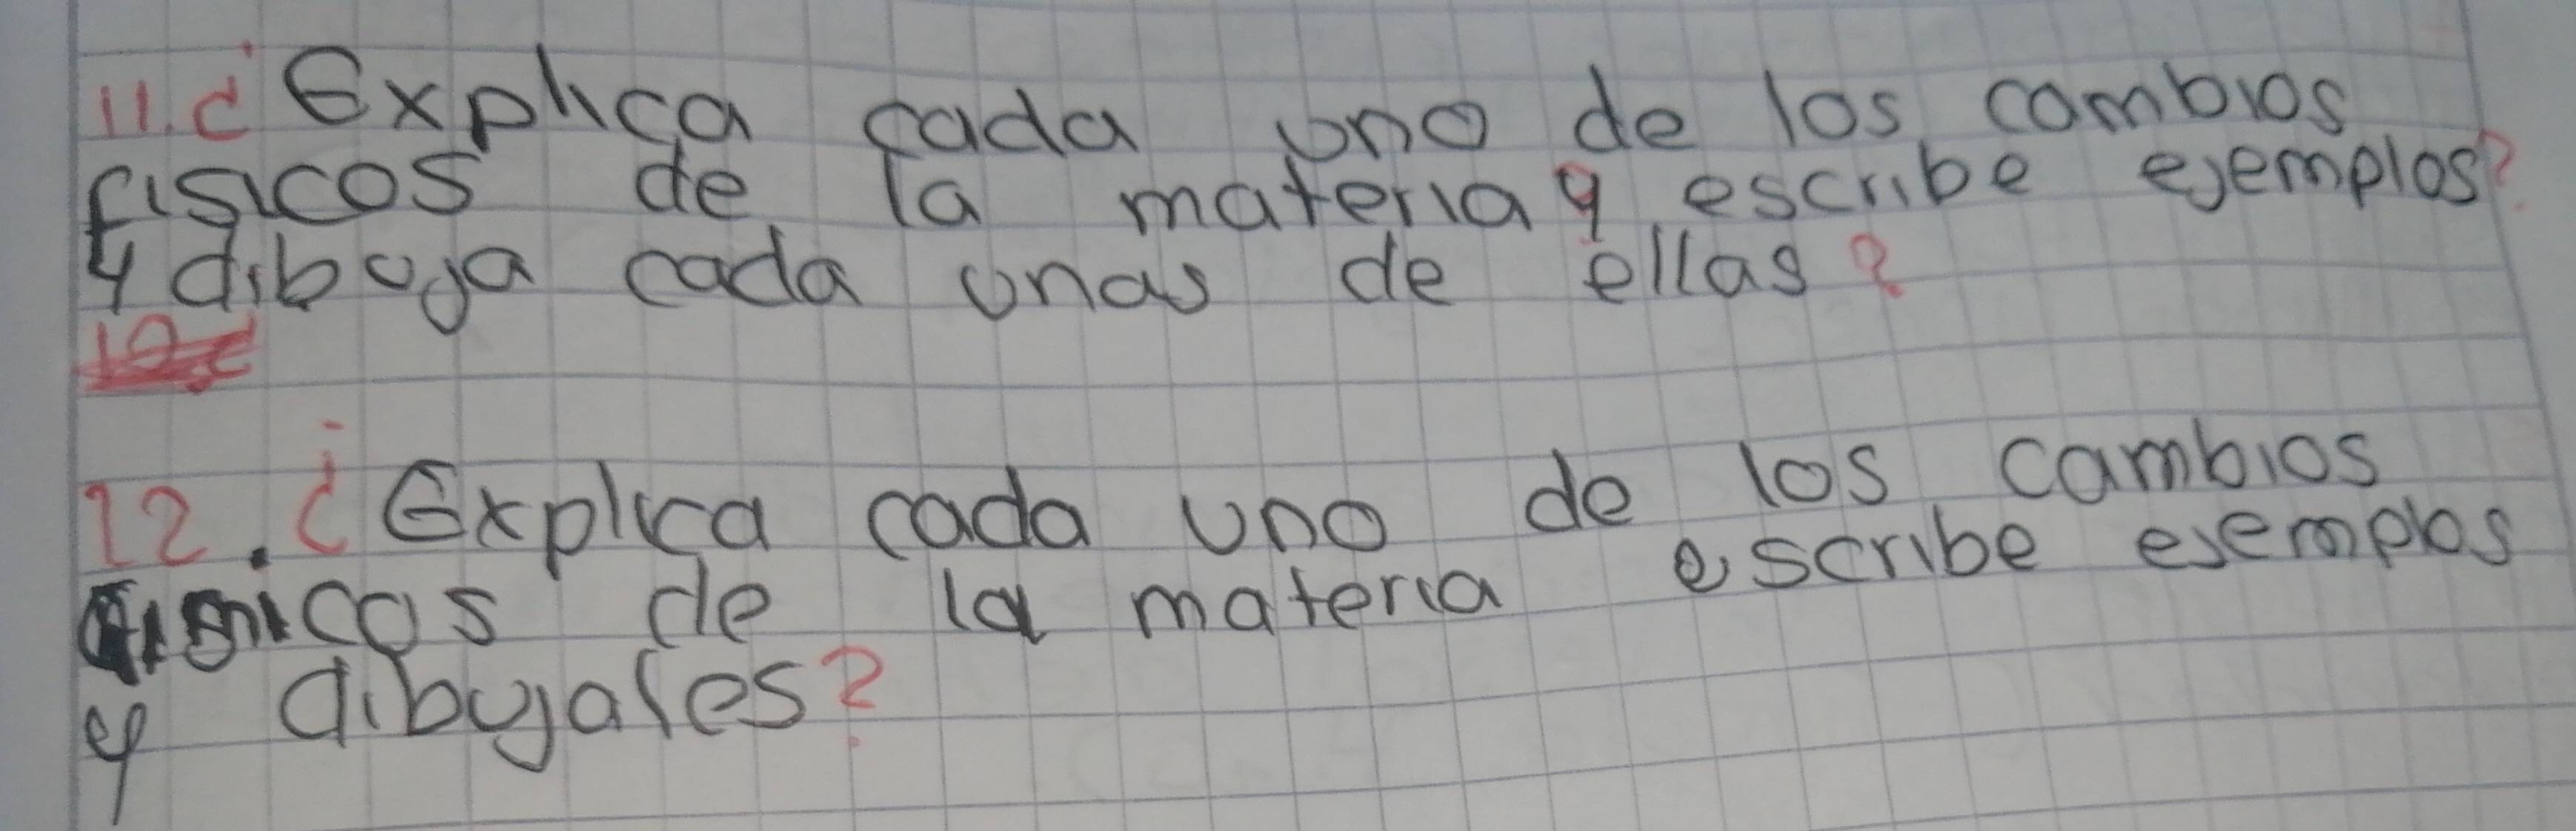 11.¿Explica cada uno de los cambios
fisicos de la materia y escribe ejemplos?
y dibuja cada unas de ellas?
12.¿Explica cada uno de los cambios
de la materia escribe ejemplos
y dibujales?